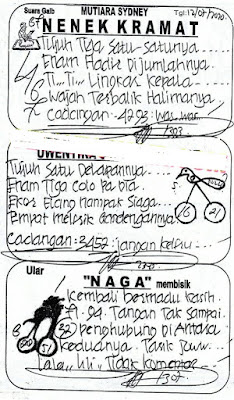 Suara Gaib MUTIARA SYDNEY Tgl: 12/07/2020
NENEK KRAMAT
Tujuh Tiga Satu-satunya....
Enam Hadir Dijumlahnya.
Ti... Ti... Lingkar kepala
Wajah Terbalik Halimanya,
Cadangan - 4293. was. was..
1303
Tujuh Satu Delapannya....
Enam Tiga colo ba bia.
Ekor Elang Nampak Siaga...
Empat melesik dendengannya
cadangan: 2452. Jangan keliru
5.
6 21
Ular "NAGA" membisik
Kembali bermadu kasih.
71. 94. Tangan Tak sampai
32) penghubung Di Antara
keduanya. Tarik
Tidak komentar
1307